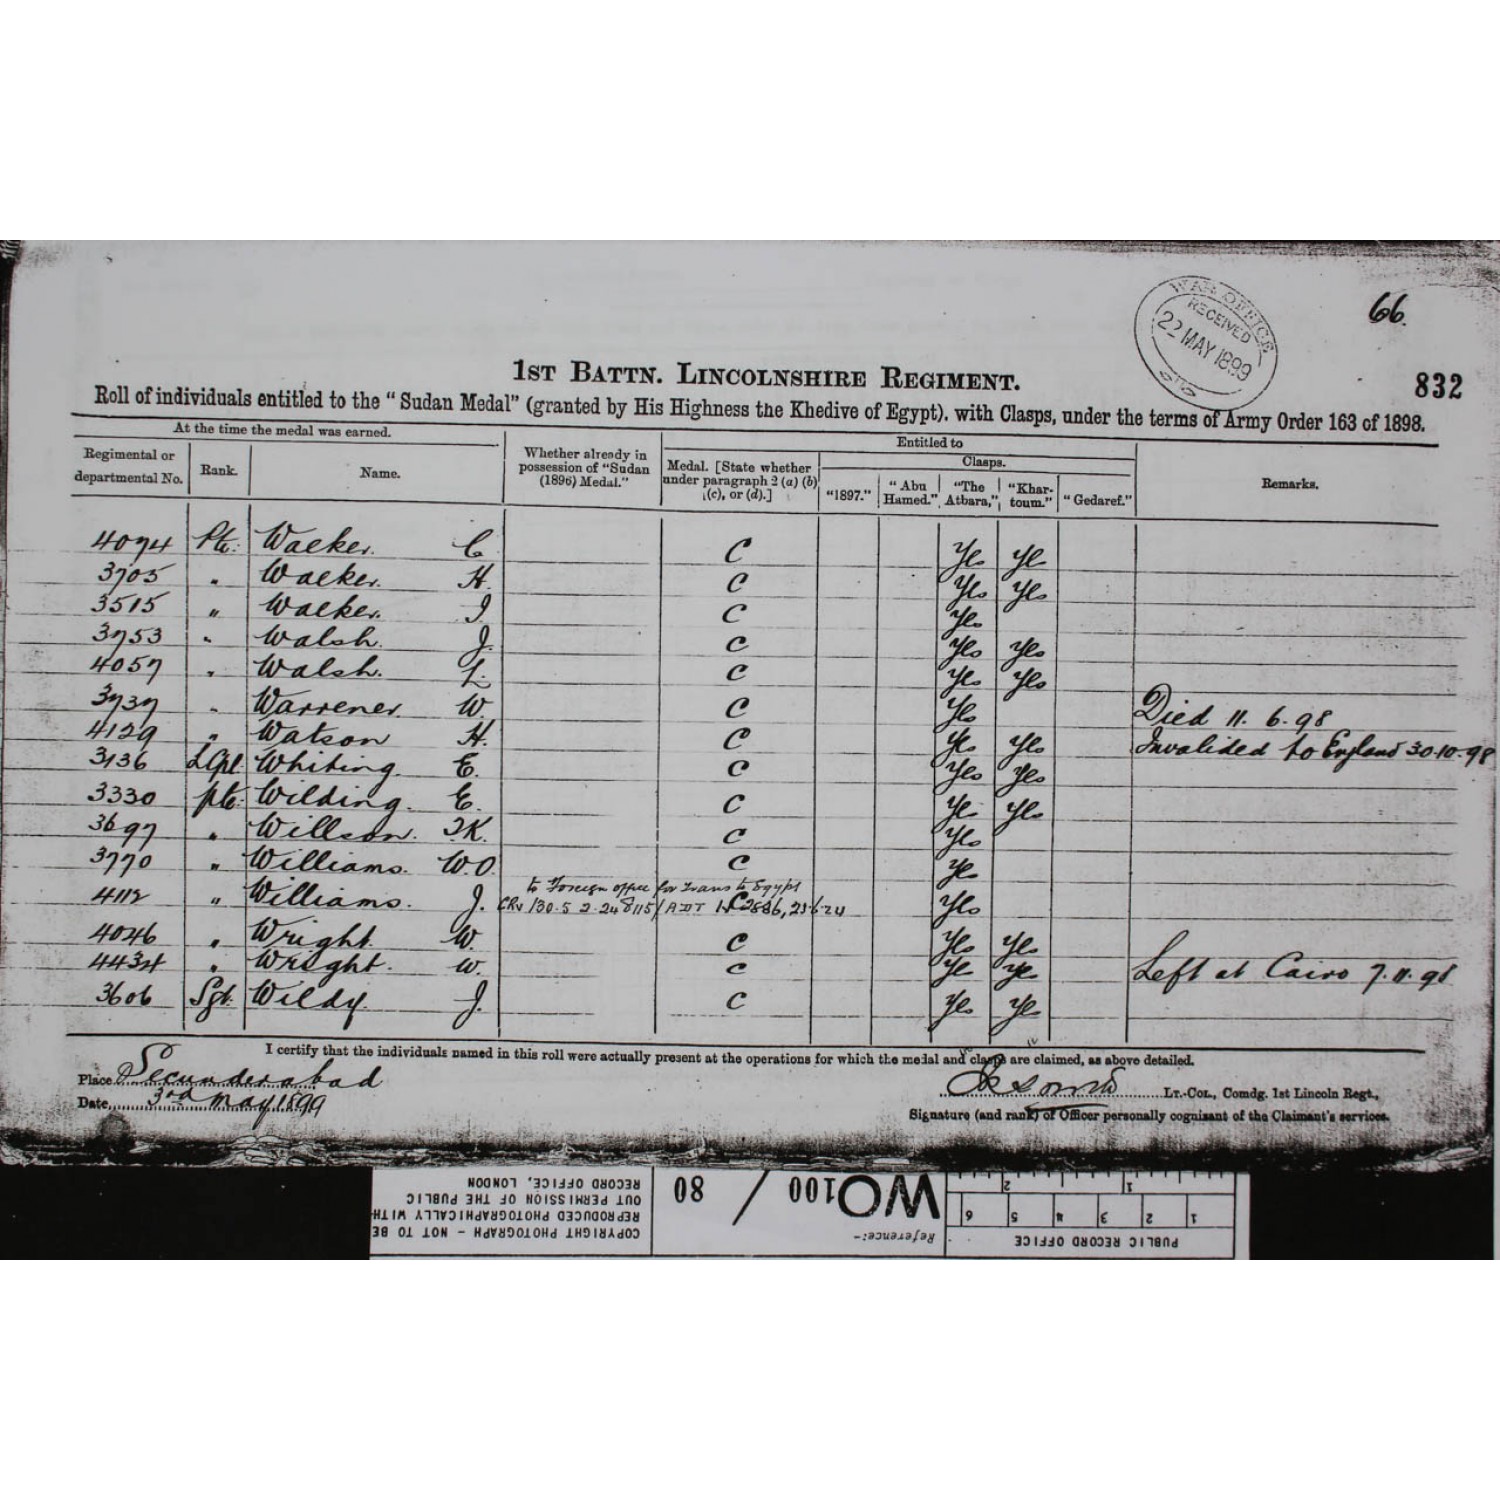 WAR OFFICE
RECEIVED
22 MAY 1899
66.
832
1ST BATTN. LINCOLNSHIRE REGIMENT.
Roll of individuals entitled to the "Sudan Medal" (granted by His Highness the Khedive of Egypt). with Clasps, under the terms of Army Order 163 of 1898.
At the time the medal was earned.
Regimental or departmental No.
Rank.
Name.
Whether already in possession of "Sudan (1896) Medal."
Entitled to
Medal. [State whether under paragraph 2 (a) (b) (c), or (d).]
Clasps.
"1897." "Abu Hamed." "The Atbara," "Khartoum." "Gedaref."
Remarks.
4074 Pte. Walker. C C Yes Yes
3705 " Walker. H. C Yes Yes
3515 " Walker. J. C Yes
3753 " Walsh. J. C Yes Yes
4057 " Walsh. L. C Yes Yes
3737 " Warrener. W. C Yes Died 11. 6. 98
4129 " Watson H. C Yes Yes Invalided to England 30.10.98
3136 LCpl. Whiting. E. C Yes Yes
3330 pte. Wilding. E. C Yes Yes
3697 " Willson. J.K. C Yes
3770 " Williams. W.O. C Yes
to Foreign office for trans to Egypt
4112 " Williams. J. C Yes
4046 " Wright. W. C Yes Yes
4434 " Wright. W. C Yes Yes Left at Cairo 7.11.98
3606 Sgt. Wildy. J. C Yes Yes
I certify that the individuals named in this roll were actually present at the operations for which the medal and clasps are claimed, as above detailed.
Place Secunderabad
Date 3rd May 1899
LT.-COL., Comdg. 1st Lincoln Regt.,
Signature (and rank) of Officer personally cognizant of the Claimant's services.
PUBLIC RECORD OFFICE
1 2 3 4 5 6
1 2
Reference:-
WO 100 / 80
COPYRIGHT PHOTOGRAPH - NOT TO BE
REPRODUCED PHOTOGRAPHICALLY WITH-
OUT PERMISSION OF THE PUBLIC
RECORD OFFICE, LONDON